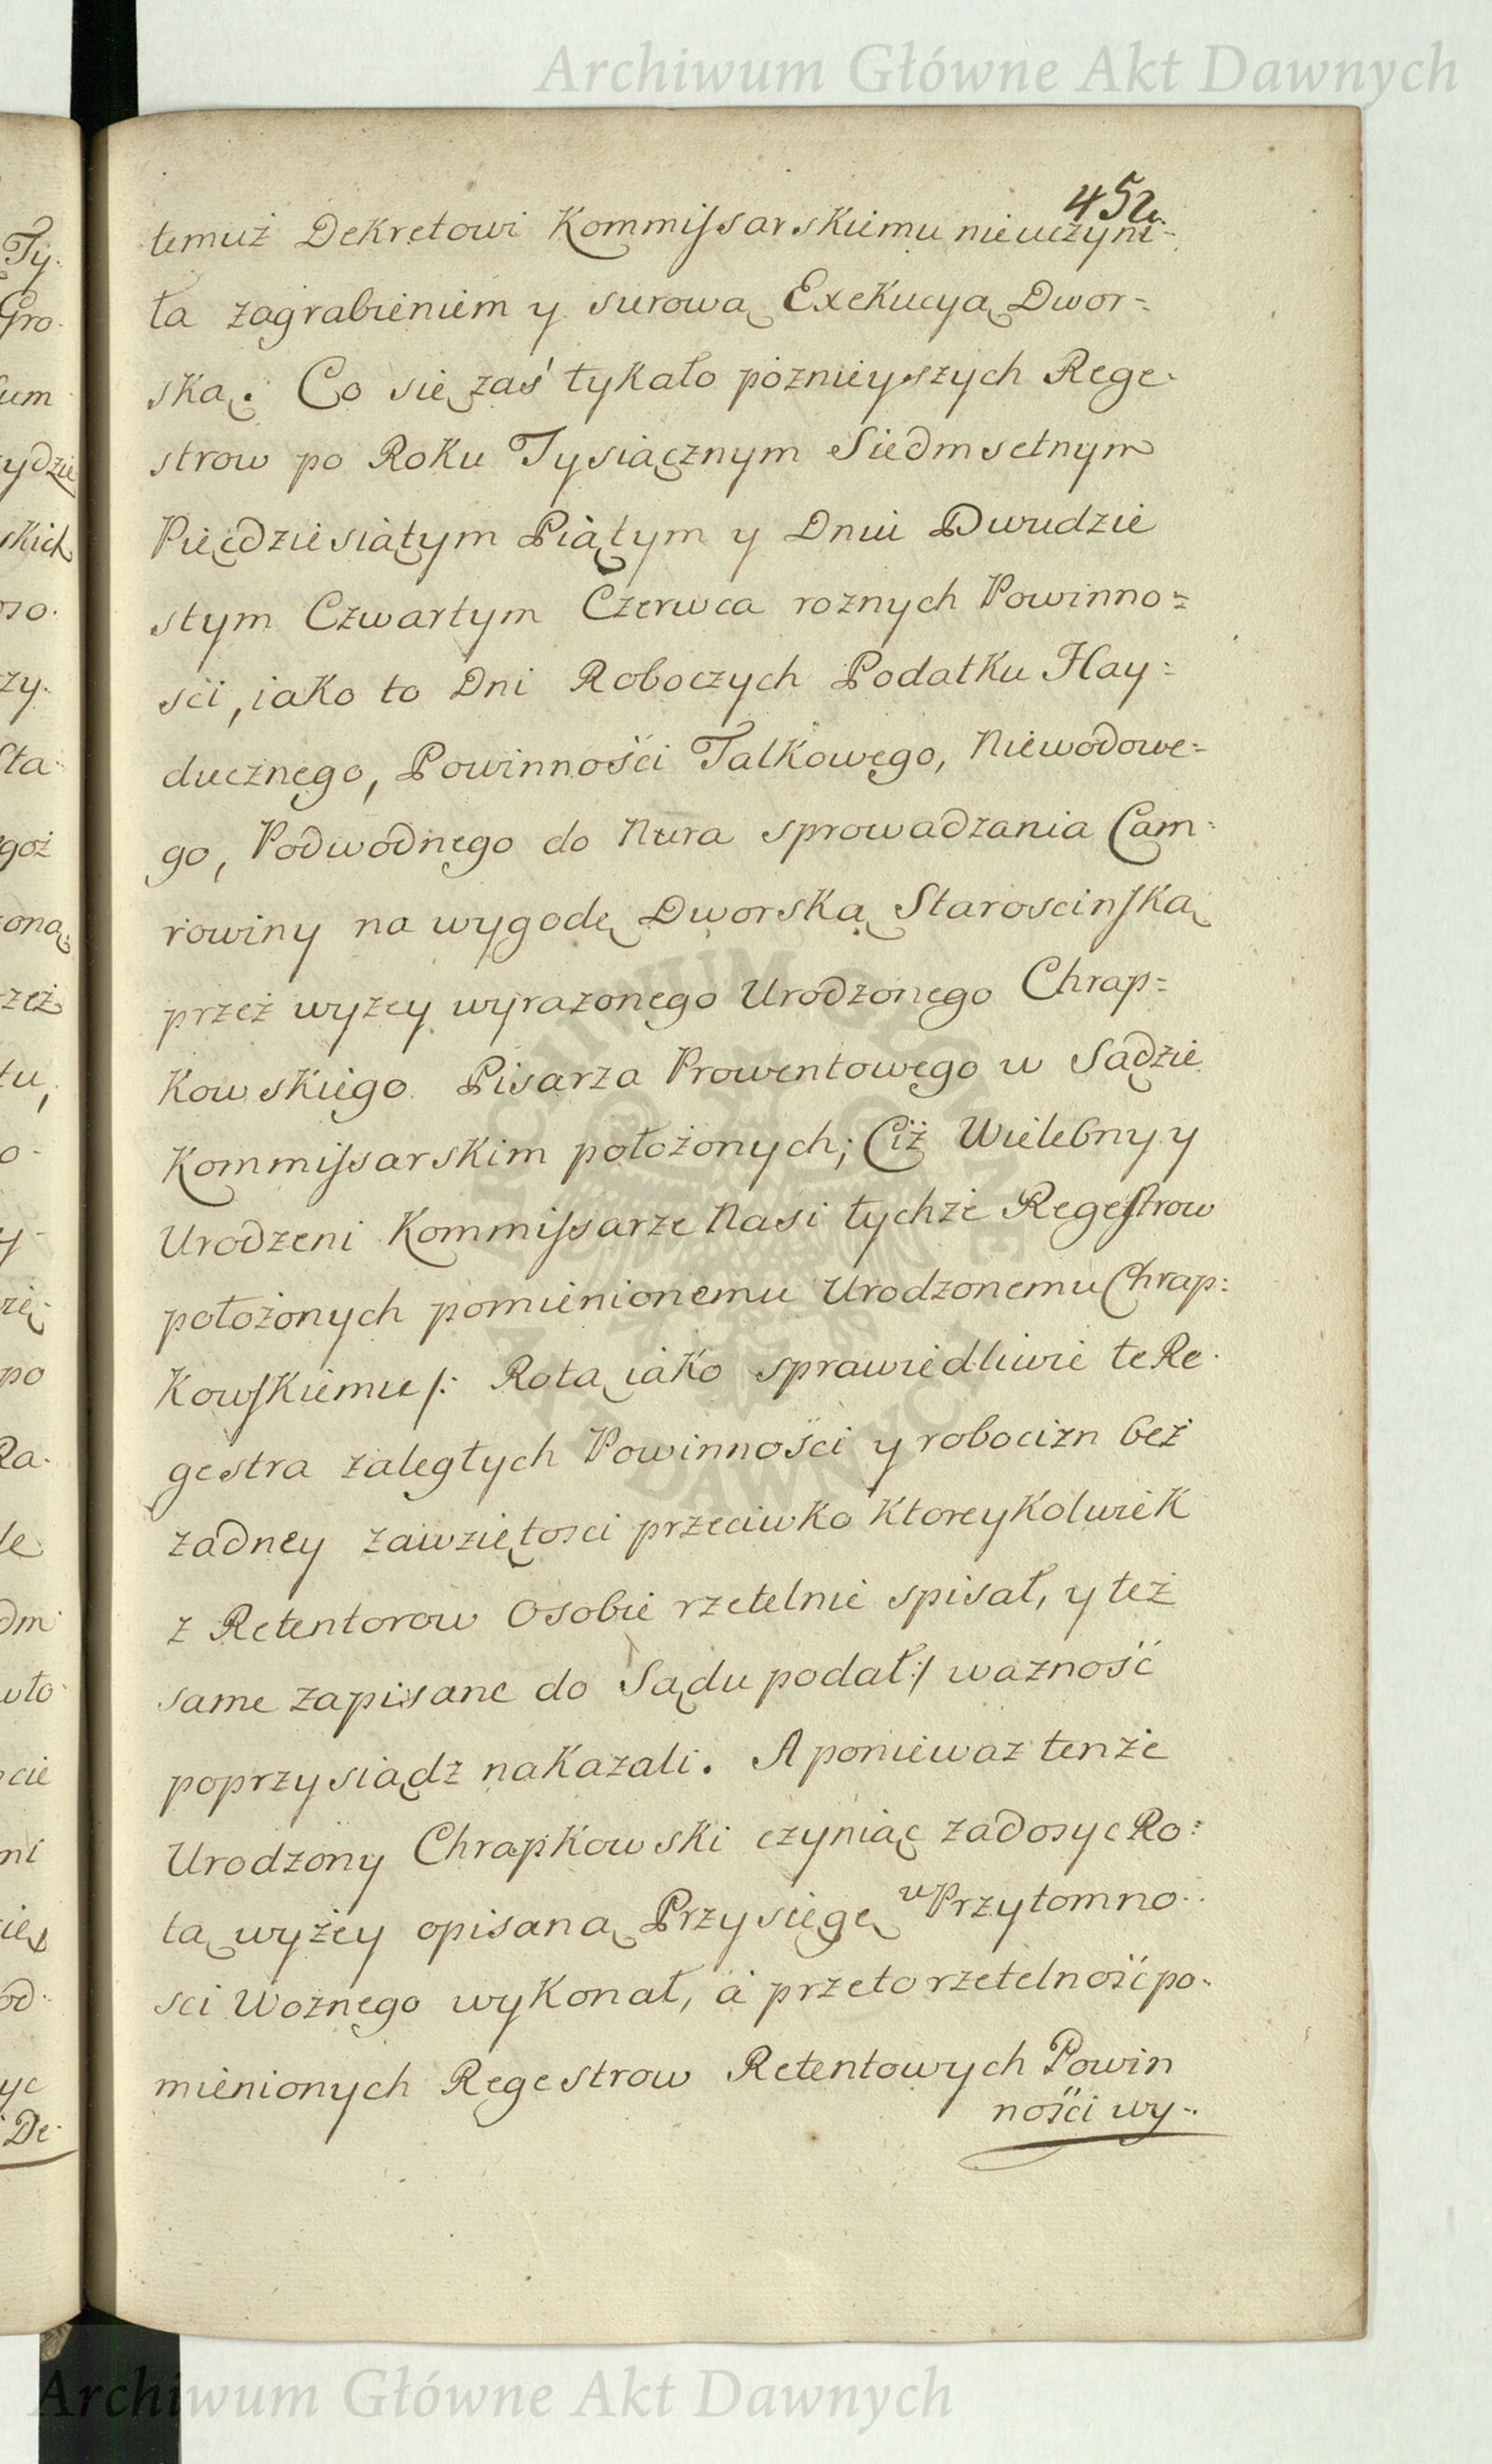 Archiwum Główne Akt Dawnych
452.
temuż Dekretowi Kommissarskiemu nieuczyni-
ła zagrabieniem y surową Exekucyą Dwor=
ską. Co się zaś tykało poznieyszych Rege-
strow po Roku Tysiącznym Siedmsetnym
Pięćdziesiątym Piątym y Dniu Dwudzie
stym Czwartym Czerwca roznych Powinno=
ści, iako to Dni Roboczych Podatku Hay=
ducznego, Powinności Talkowego, Niewodowe=
go, Podwodnego do Nura sprowadzania Cam-
rowiny na wygodę Dworską Starościnską
przeż wyzey wyrazonego Urodzonego Chrap=
kowskiego Pisarza Prowentowego w Sądzie
Kommissarskim położonych; Ciż Wielebny y
Urodzeni Kommissarze Nasi tychże Regestrow
położonych pomienionemu Urodzonemu Chrap:
kowskiemu /: Rotą iako sprawiedliwie te Re-
gestra zaległych Powinności y robocizn beż
zadney zawziętosci przeciwko ktoreykolwiek
z Retentorow Osobie rzetelnie spisał, y też
same zapisane do Sądu podał :/ wazność
poprzysiądz nakazali. A poniewaz tenże
Urodzony Chrapkowski czyniąc zadosyc Ro=
tą wyżey opisaną Przysięgę w Przytomno-
sci Woznego wykonał, á przeto rzetelność po-
mienionych Regestrow Retentowych Powin
ności wy-
Ty-
Gro-
um
ydzie
skich
oso-
zy-
Sta-
goż
oną
zeż
tu,
o-
y-
rię-
po
Ra-
le
dm
wło-
cie
ni
ię
od-
yc
De-
ARCHIWUM GŁÓWNE AKT DAWNYCH
Archiwum Główne Akt Dawnych